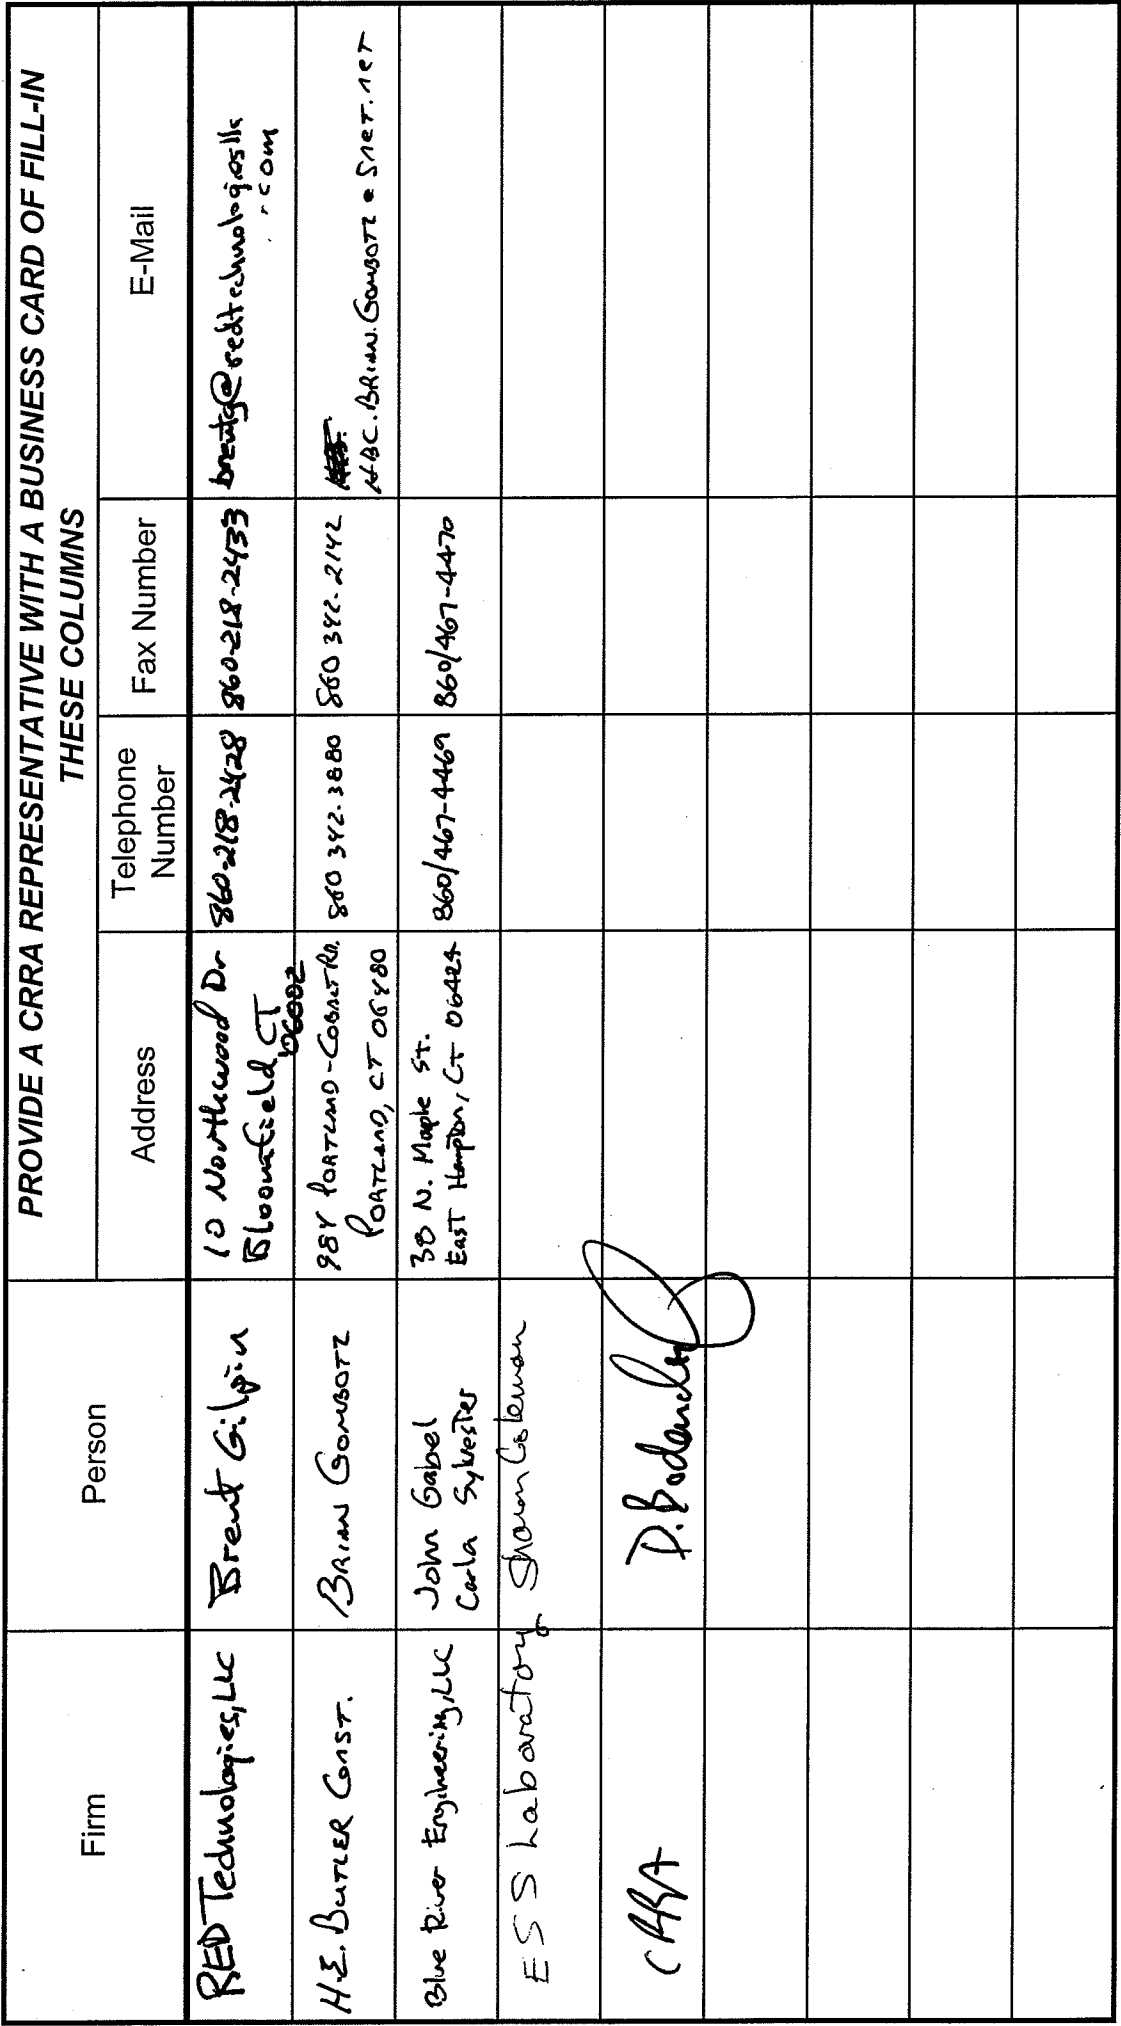 PROVIDE A CRRA REPRESENTATIVE WITH A BUSINESS CARD OF FILL-IN
THESE COLUMNS
Firm
Person
Address
Telephone
Number
Fax Number
E-Mail
RED Technologies, LLC
Brent Gilpin
10 Northwood Dr
Bloomfield, CT
06002
860-218-2428
860-218-2433
brentg@redtechnologiesllc
.com
H.E. BUTLER CONST.
BRIAN GOMBOTZ
984 PORTLAND-COBALT RD.
PORTLAND, CT 06480
860 342-3880
860 342-2142
HBC.BRIAN.GOMBOTZ@SNET.NET
Blue River Engineering, LLC
John Gabel
Carla Sylvester
38 N. Maple St.
East Hampton, Ct 06424
860/467-4469
860/467-4470
ESS Laboratory
Sharon Coleman
CRRA